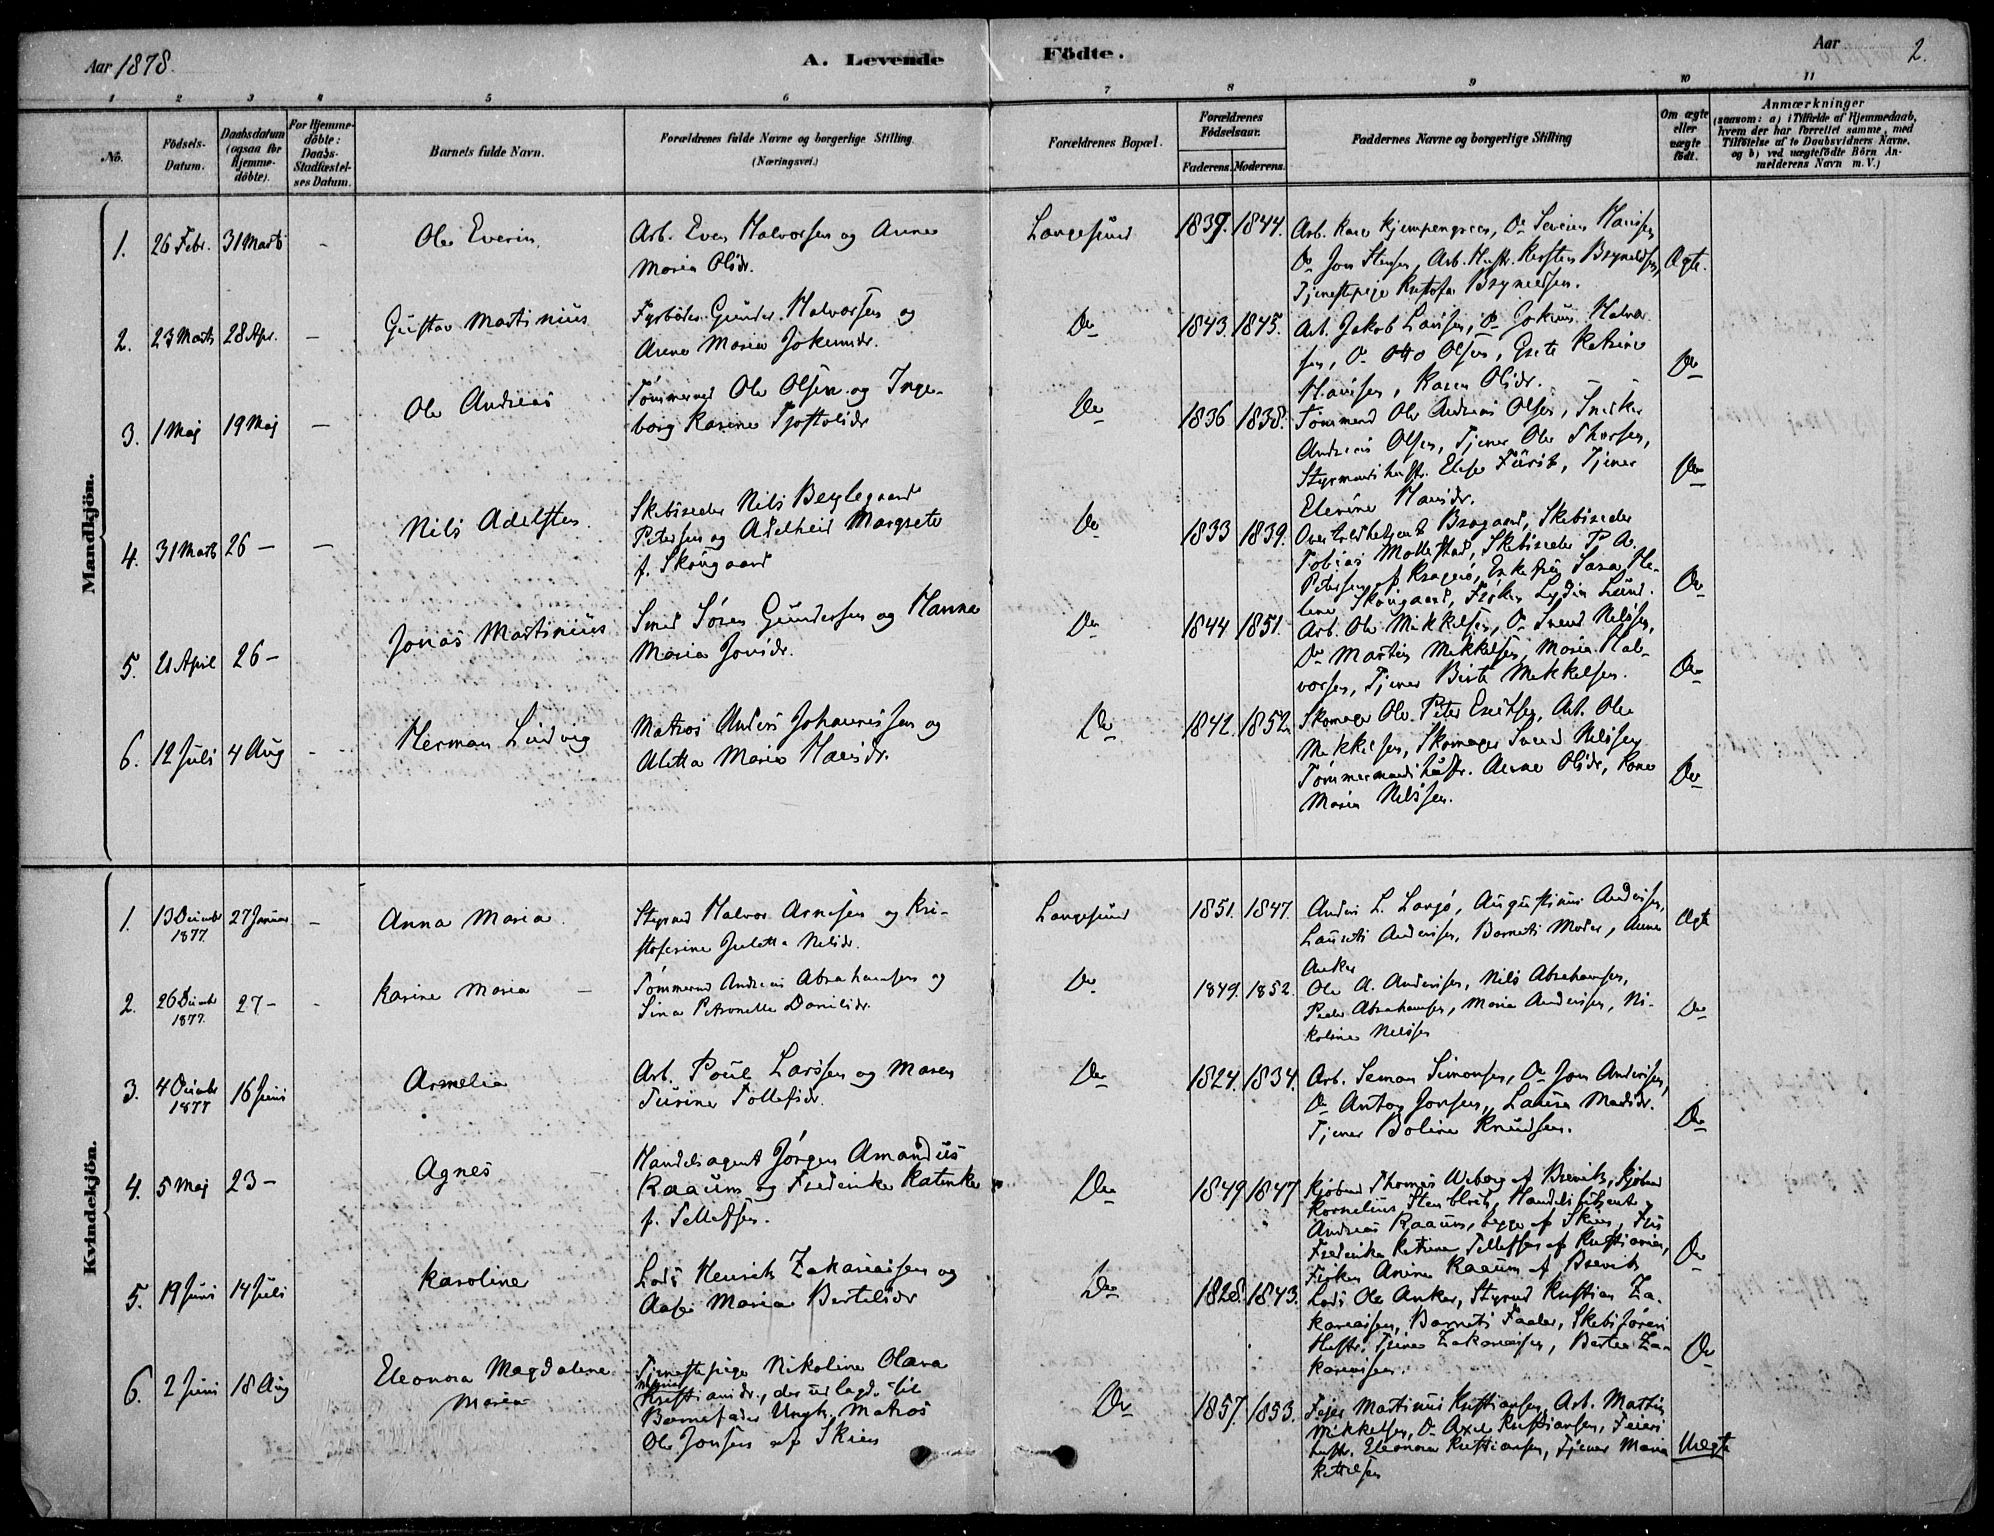 Aar 1878.
A. Levende Födte.
Aar 2.
1 2 3 4 5 6 7 8 9 10 11
No.
Födsels-Datum.
Daabsdatum (ogsaa for Hjemme-döbte).
For Hjemme-döbte: Daabs-Stadfæstel-ses Datum.
Barnets fulde Navn.
Forældrenes fulde Navne og borgerlige Stilling. (Næringsvei.)
Forældrenes Bopæl.
Forældrenes Födselsaar.
Faderens. Moderens.
Faddernes Navne og borgerlige Stilling
Om ægte eller uægte födt.
Anmærkninger
(saasom: a) i Tilfælde af Hjemmedaab, hvem der har forrettet samme, med Tilföielse af to Daabsvidners Navne, og b) ved uægtefödte Börn An-melderens Navn m. V.)
Mandkjön.
1. 26 Febr. 31 Marts - Ole Everin
Arb. Even Halvorsen og Anne
Maria Olsdr.
Langesund 1839. 1844.
Do Jon Stensen, Arb. Hustr. Kirsten Brynildsen,
Tjenestepige Brynildsen.
Ægte.
2. 23 Marts 28 Apr. - Gustav Martinius
Fyrböder Gunder Halvorsen og
Anne Maria Jokumdr.
Do 1843. 1845.
Arb. Jakob Larsen, Do Jokum Halvor
sen, Do Otto Olsen, Grete Katrine
Hansen, Karen Olsdr.
Do
3. 1 Maj 19 Maj - Ole Andreas
Tömmermd Ole Olsen og Inge-
borg Karine Tjostolsdr
Do 1836 1838.
Tömmermd Ole Andreas Olsen, Snedker
Andreas Olsen, Tjener Ole Thorsen,
Styrmands hustr. Elise Fürst, Tjener
Elevine Hansdr.
Do
4. 31 Marts 26 - - Nils Adelsten
Skibsreder Nils Beylegaard
Petersen og Adelheid Margrete
f. Skougaard
Do 1833 1839.
Overtoldbetjent Brogaard, Skibsreder
Tobias Mollestad, Skibsreder P. A.
Petersen af Kragerø, Enkefru Sara He-
lene Skougaard, Frøken Lydia Lund.
Do
5. 21 April 26 - Jonas Martinius
Smed Sören Gundersen og Hanna
Maria Jonsdr.
Do 1844 1851.
Arb. Ole Mikkelsen, Do Svend Nilssen,
Do Martin Mikkelsen, Maria Hal-
vorsen, Tjener Birte Mikkelsen.
Do
6. 12 Juli 4 Aug - Herman Ludvig
Matros Anders Johannessen og
Aletta Maria Hansdr.
Do 1842. 1852
Skomager Ole Peter Eriksen, Arb. Ole
Mikkelsen, Skomager Svend Nilssen
Tömmermands hustr. Anne Olsdr, Kone
Maria Nilssen.
Do
Kvindekjön.
1. 13 Decembr 1877. 27 Januar - Anna Maria
Styrmd Halvor Arnesen og Kri-
stoferine Juletta Nilsdr.
Langesund 1851. 1847.
Anders L. Langö, Augustinus Andersen,
Laurits Andersen, Barnets Moder, Anne
Anker
Ægte
2. 26 Decbr 1877. 27 - - Karine Maria -
Tömmermd Andreas Abrahamsen og
Sina Petronelle Danielsdr.
Do 1849. 1852.
Ole A. Andersen, Nils Abrahamsen,
Peder Abrahamsen, Maria Andersen, Ni-
koline Nilssen
Do
3. 4 Decembr 1877 16 Juni Armelia
Arb. Poul Larssen og Maren
Turine Tollefsdr.
Do 1824. 1834.
Arb. Simon Simonsen, Do Jon Andersen,
Do Anton Jonsen, Laura Madsdr.
Tjener Boline Knudsen.
Do
4. 5 Maj 23 - Agnes -
Handelsagent Jörgen Amandus
Raaum og Frederikke Katinka
f. Tellefsen.
Do 1849 1847
Kjøbmd Thomas Wiborg af Brevik, Kjøbmd
Kornelius Stenblock, Handelsbetjent
Andreas Raaum, begge af Skien, Fru
Frederikke Katrine Tellefsen af Kristiania,
Frøken Anine Raaum af Brevik
Do
5. 19 Juni 14 Juli Karoline
Lods Henrik Zakariassen og
Aase Maria Bertelsdr
Do 1828. 1843.
Lods Ole Anker, Styrmd Kristian Za-
kariassen, Barnets Fader, Skibsförers
Hustr. Trine Zakariassen, Berthe Za-
kariassen.
Do
6. 2 Juni 18 Aug Eleonora Magdalene
Maria
Tjenestepige Nikoline Olava
Maria
Kristiansdr., der udlagde til
Barnefader Ungk. Matros
Ole Jonsen af Skien
Do 1857. 1853.
Fejer Martinus Kristiansen, Arb. Martin
Mikkelsen, Do Axel Kristiansen, Feiers
hustr. Eleonora Kristiansen, Tjener Maria
Kittilsen
Uægte